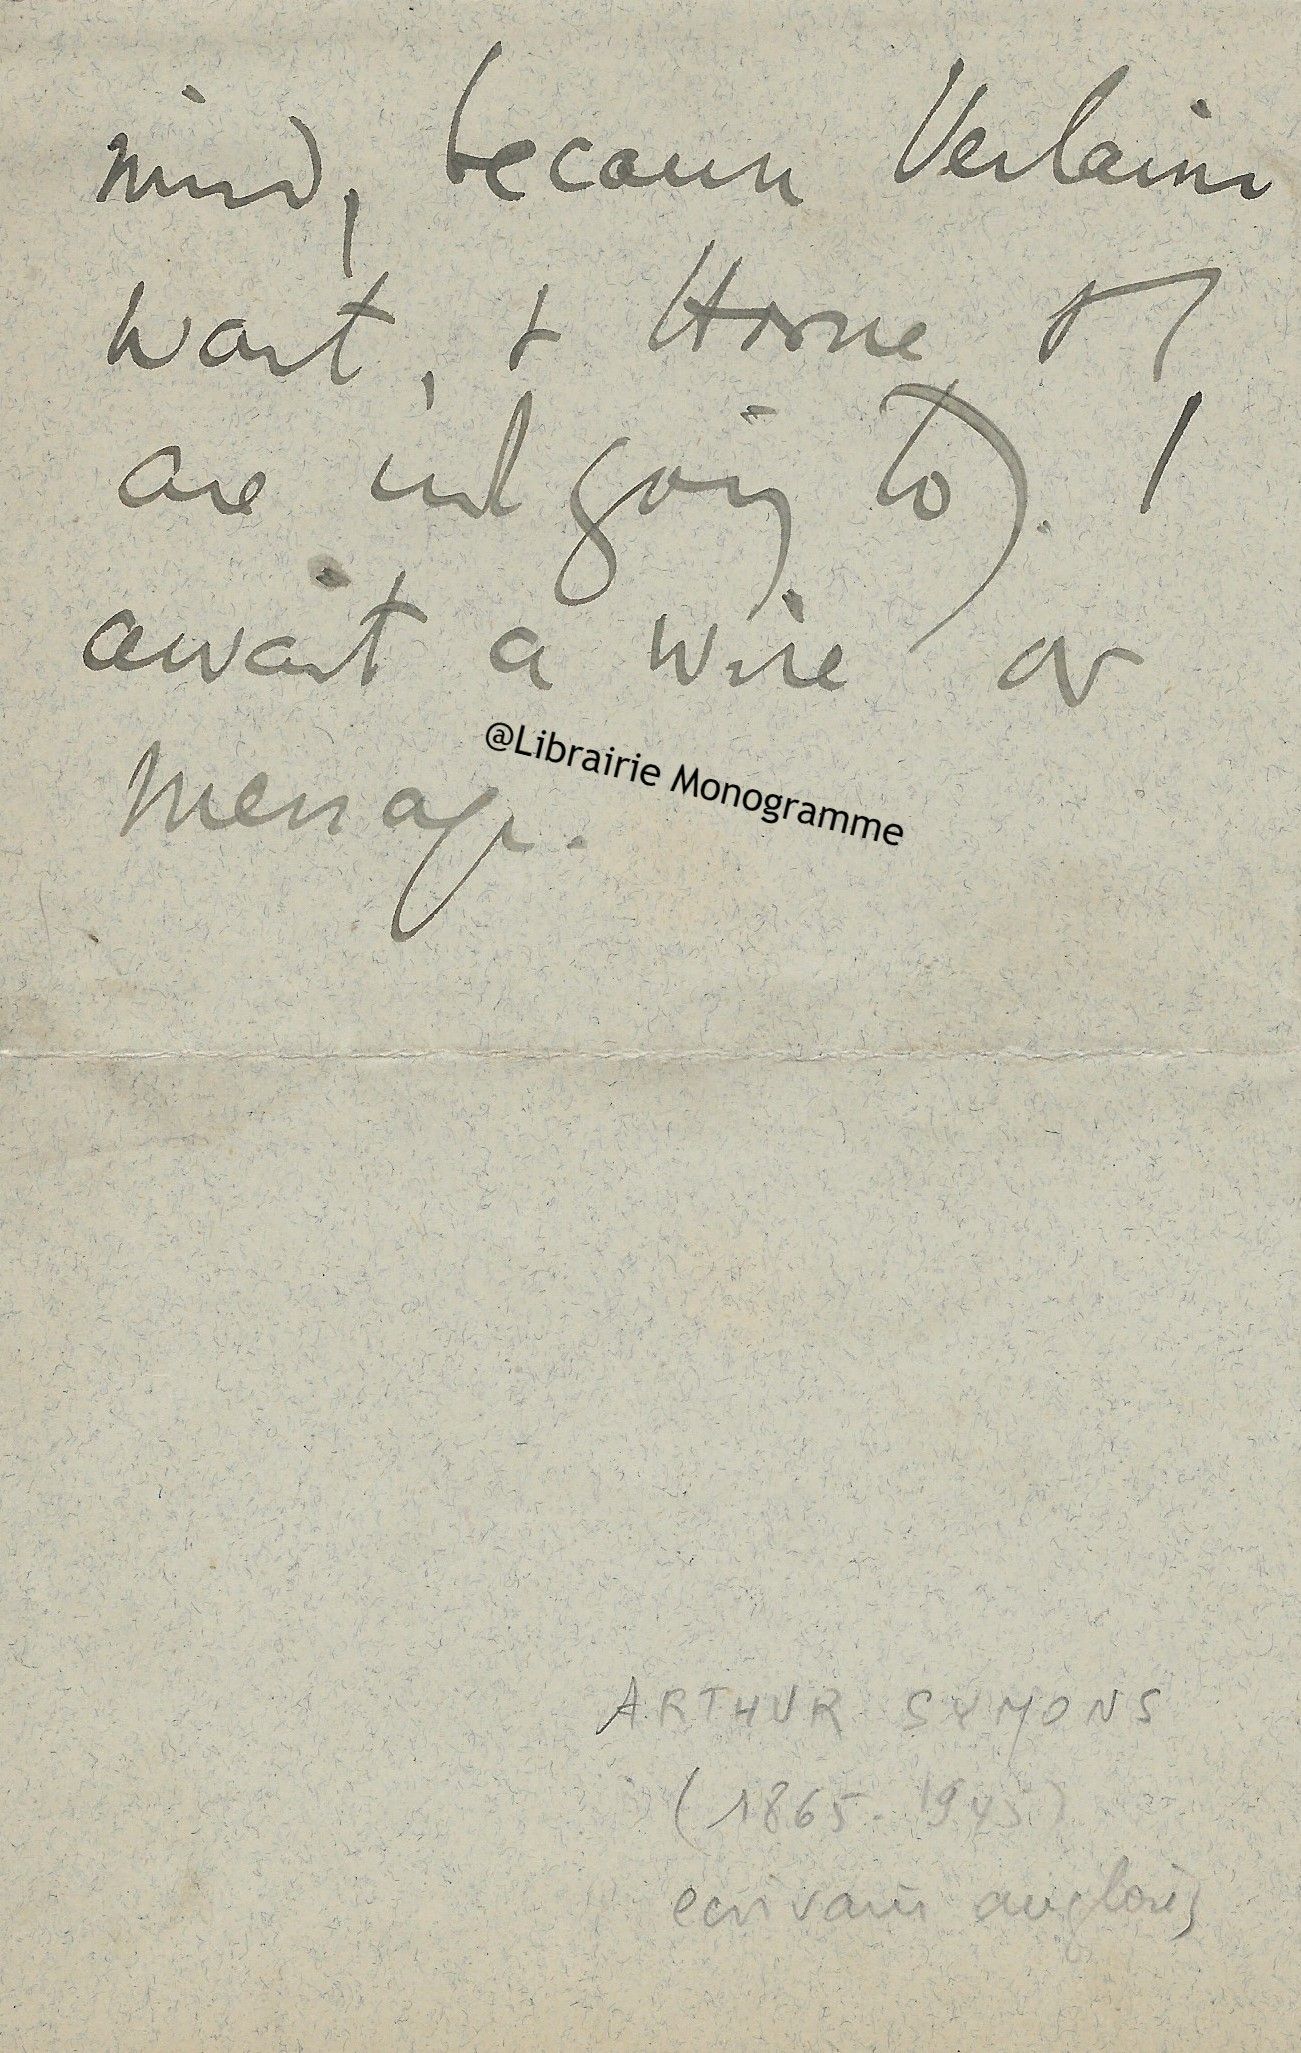 mind, because Verlaine
wont, & Horne & I
are not going to). I
await a wire or
message.
@Librairie Monogramme
ARTHUR SYMONS
(1865-1945)
ecrivain anglais